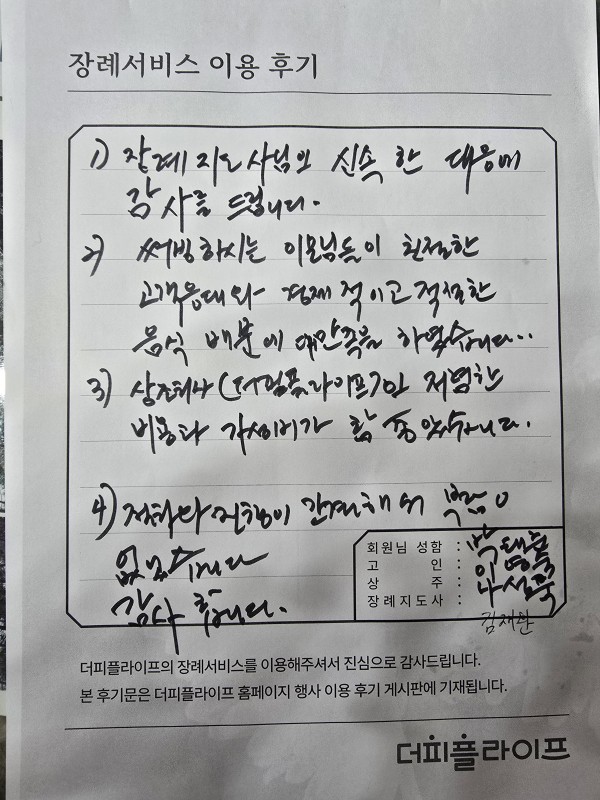 장례서비스 이용 후기
1) 장례지도사님의 신속한 대응에
감사를 드립니다.
2) 써빙하시는 이모님들이 친절한
고객응대와 경제적이고 적절한
음식 배분에 대만족을 하였습니다..
3) 상조회사(더피플라이프)의 저렴한
비용과 가성비가 참 좋았습니다.
4) 절차와 진행이 간결해서 부담이
없었습니다
감사합니다.
회원님 성함 :
고 인 :
상 주 :
장례지도사 : 김재환
더피플라이프의 장례서비스를 이용해주셔서 진심으로 감사드립니다.
본 후기문은 더피플라이프 홈페이지 행사 이용 후기 게시판에 기재됩니다.
더피플라이프